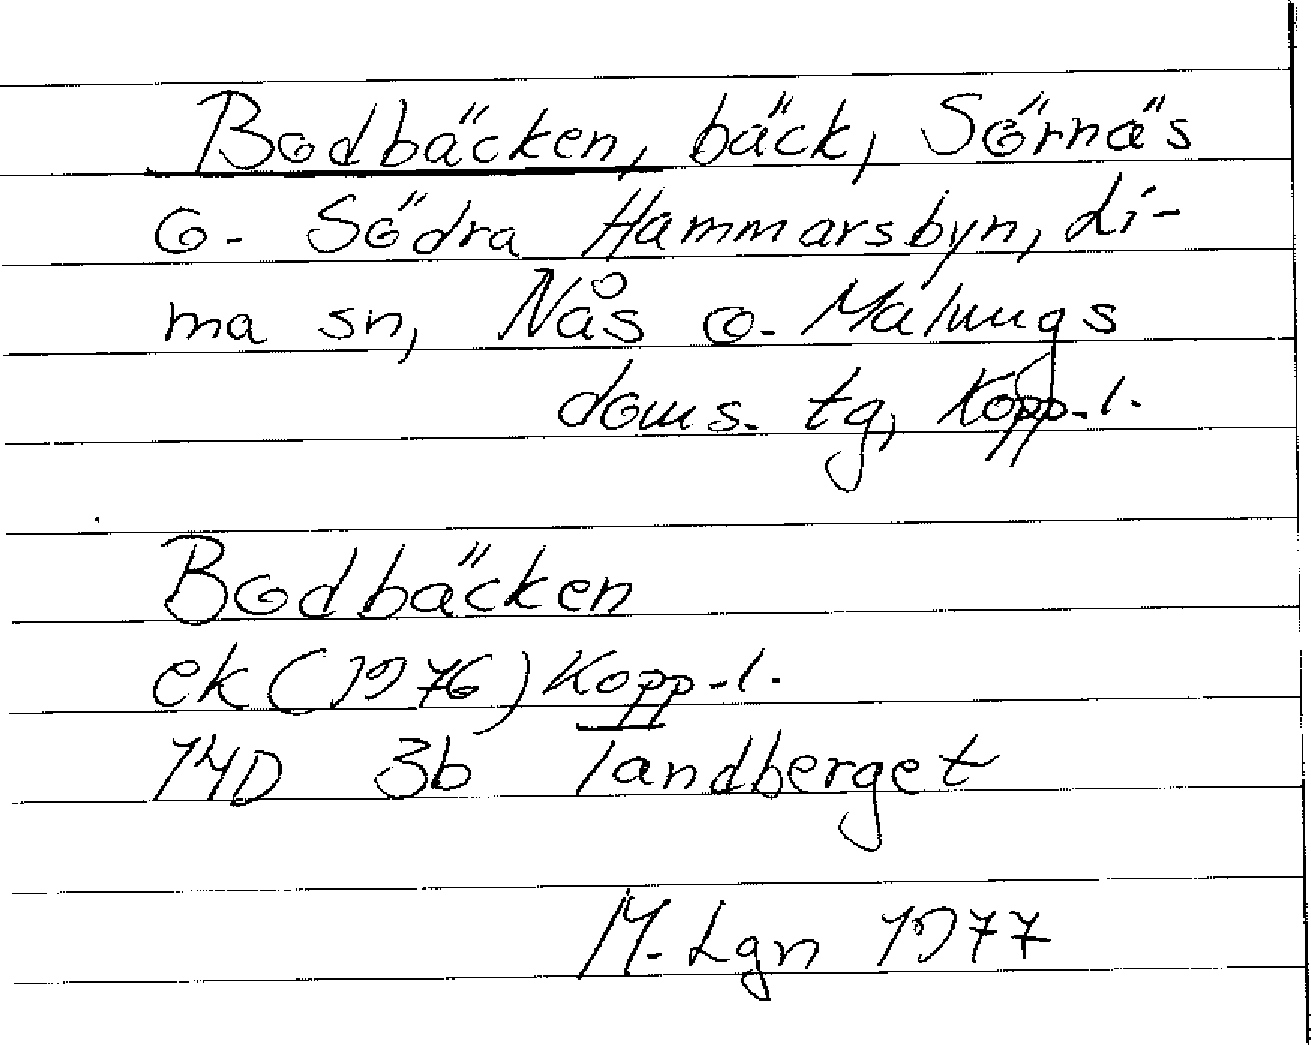 Bodbäcken, bäck, Sörnäs
o. Södra Hammarsbyn, Li-
ma sn, Nås o. Malungs
doms. tg, Kopp. l.
Bodbäcken
ek (1976) Kopp. l.
14D 3b Tandberget
M. Lgn 1977